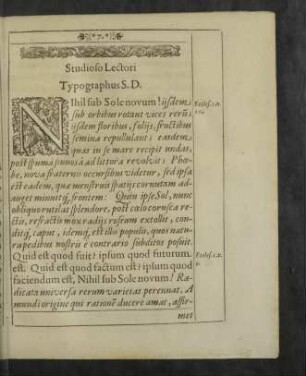 7.
Studioso Lectori
Typographus S. D.
Nihil sub Sole novum! iisdem
sub orbibus rotant vices rerũ:
iisdem floribus, foliis, fructibus
semina repullulant: easdem,
quas in se mare recipit undas,
post spumas ad littora revolvit: Phœ-
be, nova fraterno occursibus videtur, sed ipsa
est eadem, quæ menstruis spatiis cornutam ad-
auget minuitq; frontem: Quin ipse Sol, nunc
obliquo rutilat splendore, post cœlo corusca re-
cto, refractis mox radiis roseam extollit, con-
ditq; caput, idemq; est illo populis, quos natu-
ra pedibus nostris è contrario subditos posuit.
Quid est quod fuit? ipsum quod futurum
est. Quid est quod factum est? ipsum quod
faciendum est, Nihil sub Sole novum! Ra-
dicata universa rerum varietas perennat. A
mundi origine qui rationẽ ducere amat, affir-
met
Eccles. 1.
Eccles. 1. v.